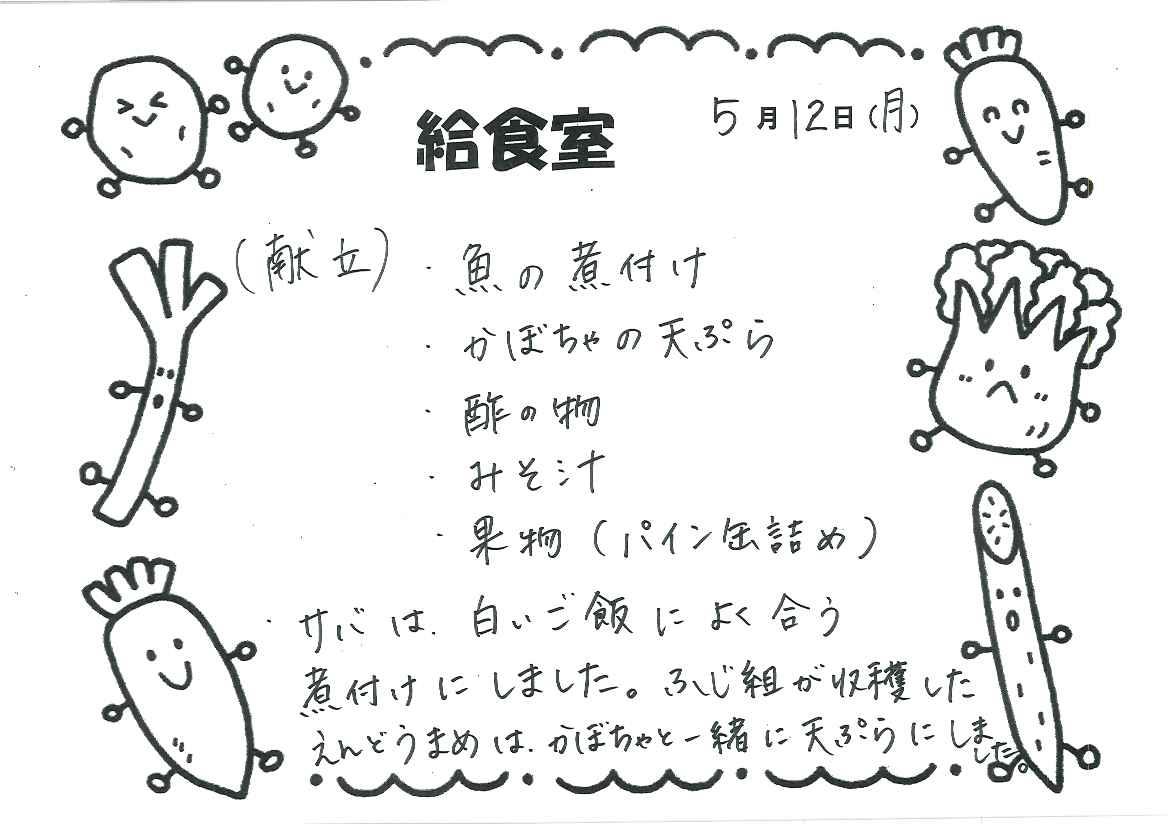 給食室
5月12日(月)
(献立)・魚の煮付け
・かぼちゃの天ぷら
・酢の物
・みそ汁
・果物(パイン缶詰め)
・サバは、白いご飯によく合う
煮付けにしました。ふじ組が収穫した
えんどうまめは、かぼちゃと一緒に天ぷらにしました。